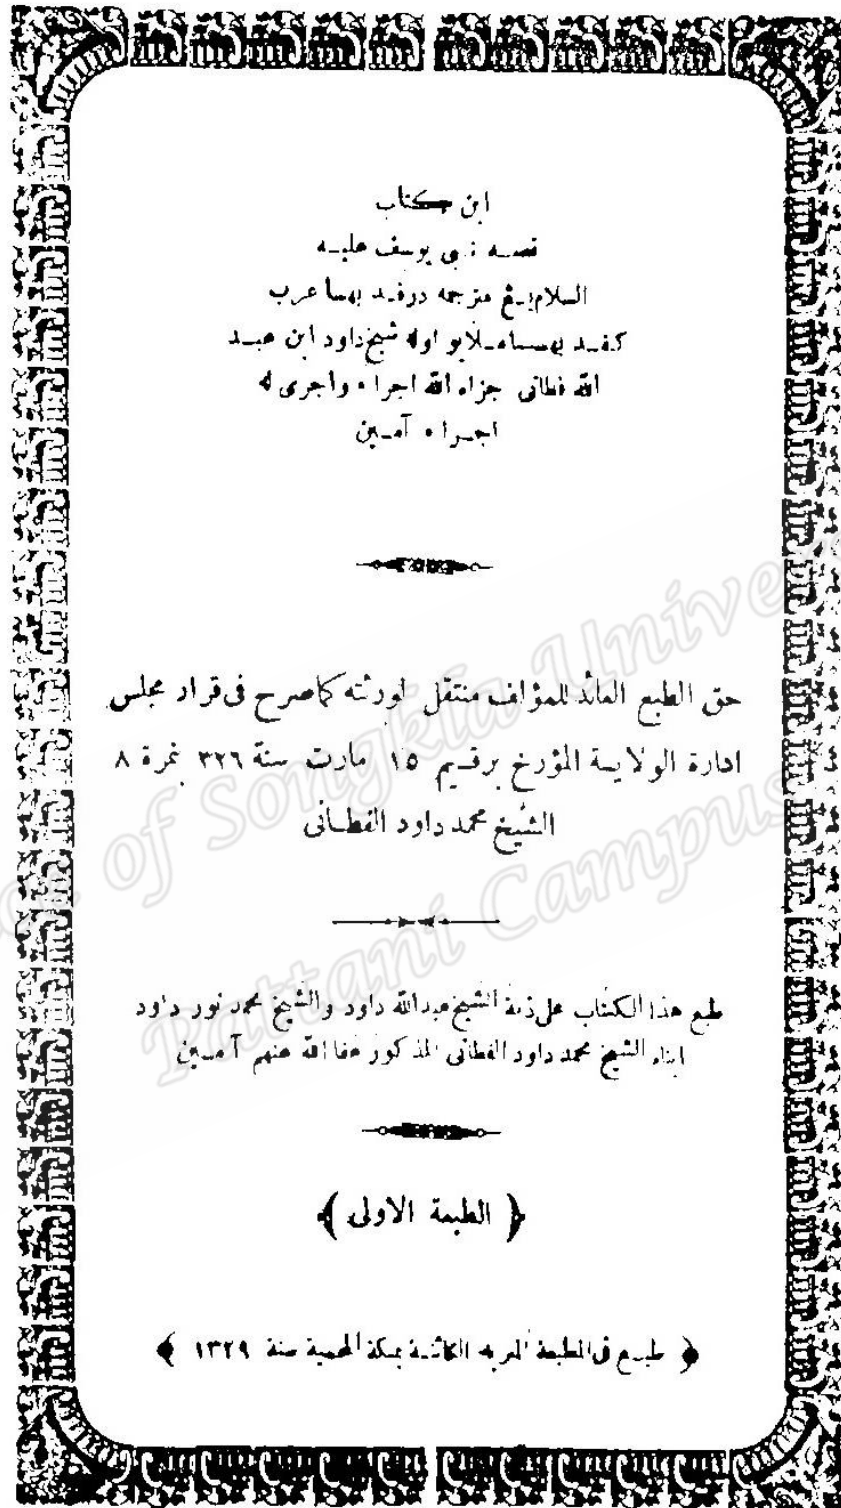 اين كتاب
قصه نبي يوسف عليه
السلام يڠ مترجمه درفد بهسا عرب
كفد بهساملايو اوله شيخ داود ابن عبد
الله فطاني جزاه الله اجراه واجرى له
اجراه آمين
حق الطبع العائد للمؤلف منتقل لورثته كما صرح فى قرار مجلس
ادارة الولاية المؤرخ برقيم ١٥ مارت سنة ٣٢٦ نمرة ٨
الشيخ محمد داود الفطانى
طبع هذا الكتاب على ذمة الشيخ عبدالله داود والشيخ محمد نور داود
ابناء الشيخ محمد داود الفطانى المذكور عفا الله عنهم آمين
﴿ الطبعة الاولى ﴾
﴿ طبع فى المطبعة الميريه الكائنة بمكة المحمية سنة ١٣٢٩ ﴾
of Songkla Univer
Pattani Campus